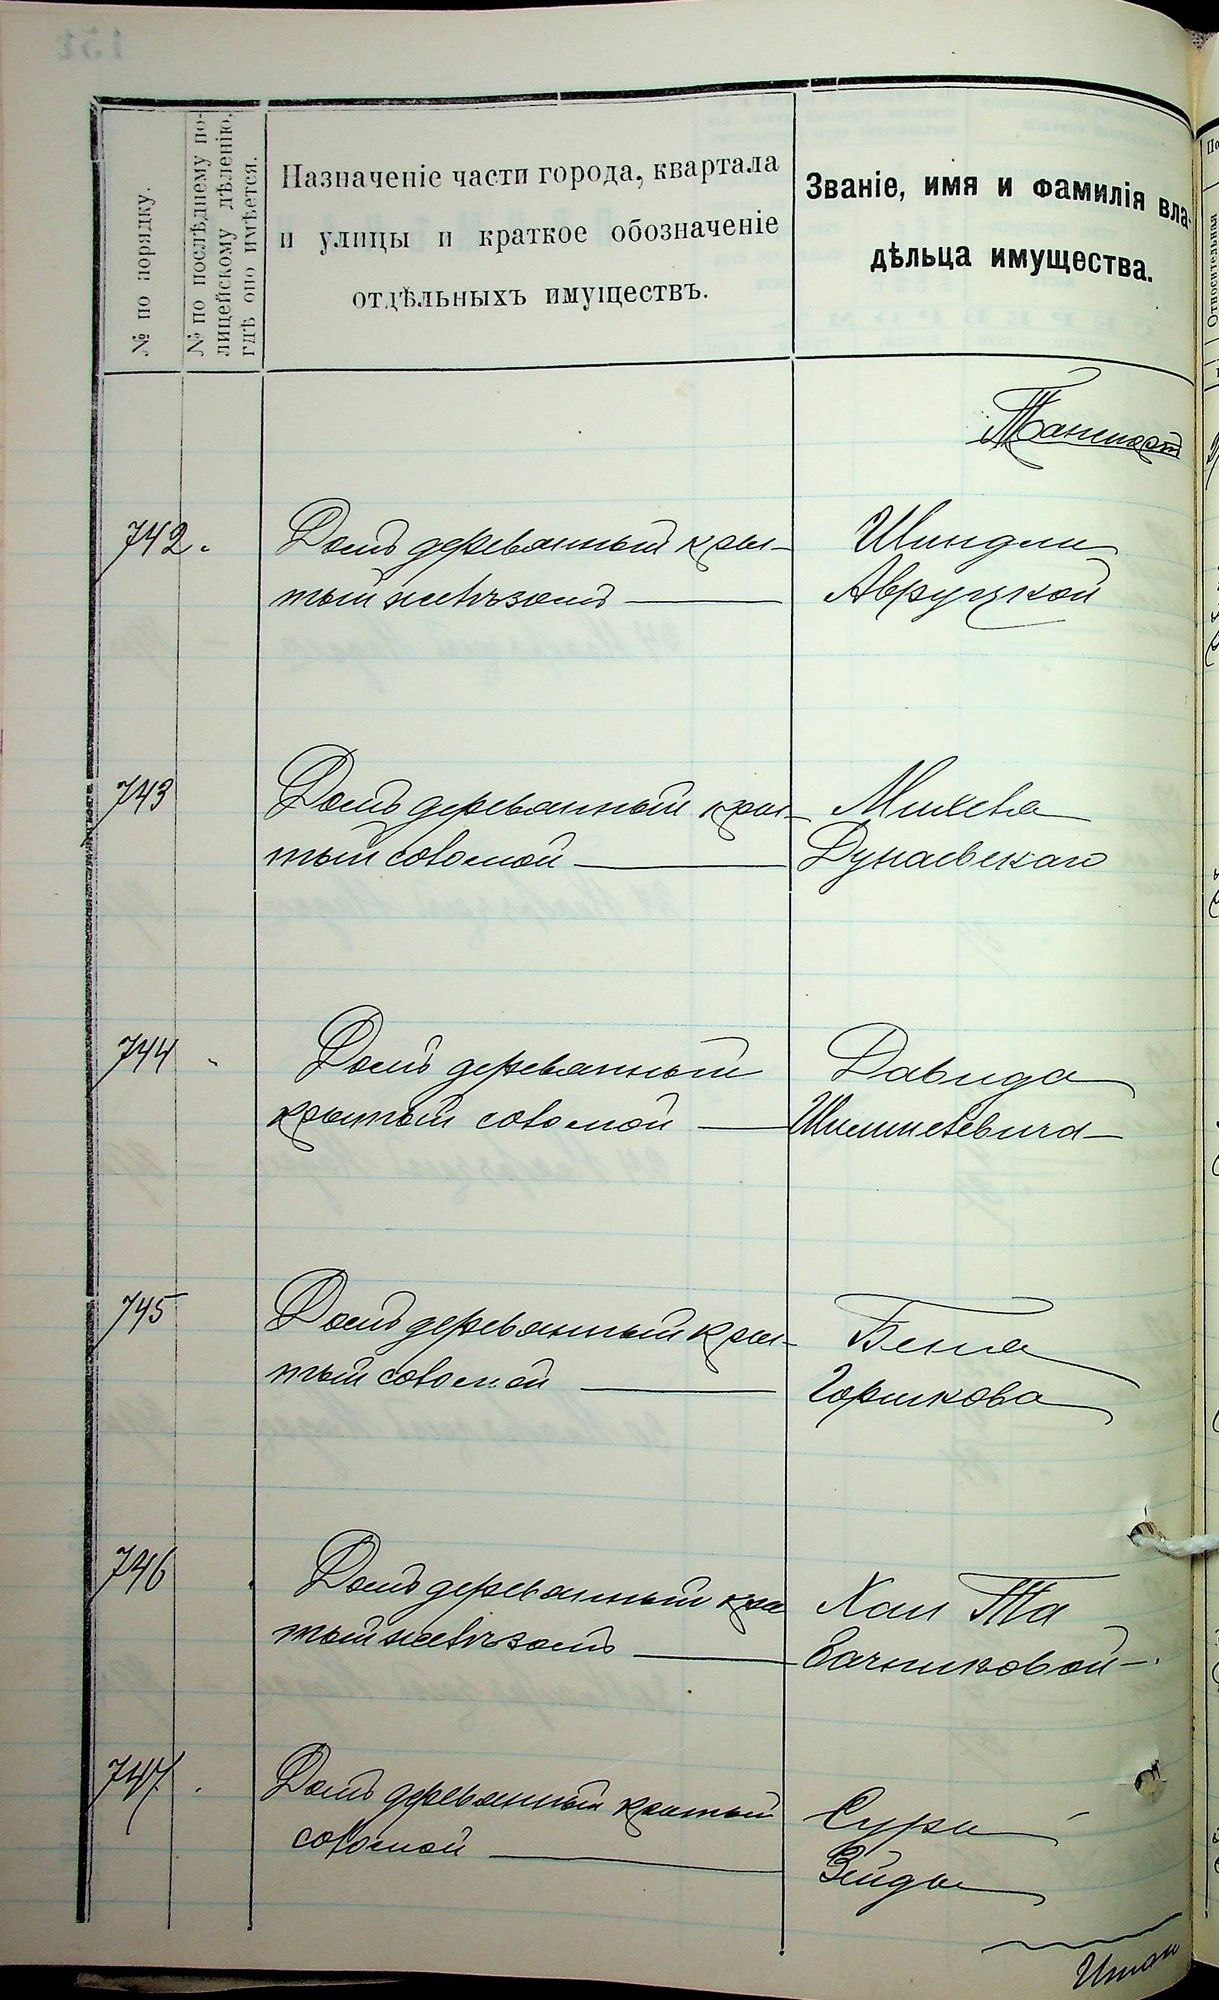 № по порядку.
№ по послѣднему по-
лицейскому дѣленію,
гдѣ оно имѣется.
Назначеніе части города, квартала
и улицы и краткое обозначеніе
отдѣльныхъ имуществъ.
Званіе, имя и фамилія вла-
дѣльца имущества.
742.
Домъ деревянный кры-
тый желѣзомъ
Шиндли
Авруцкой
743
Домъ деревянный кры-
тый соломой
Михеля
Дунаевскаго
744
Домъ деревянный
крытый соломой
Давида
Шимшелевича
745
Домъ деревянный кры-
тый соломой
Бена
Горликова
746
Домъ деревянный кры
тый желѣзомъ
Хаи Та
бачниковой
747.
Домъ деревянный крытый
соломой
Суры
Зейды
Итого